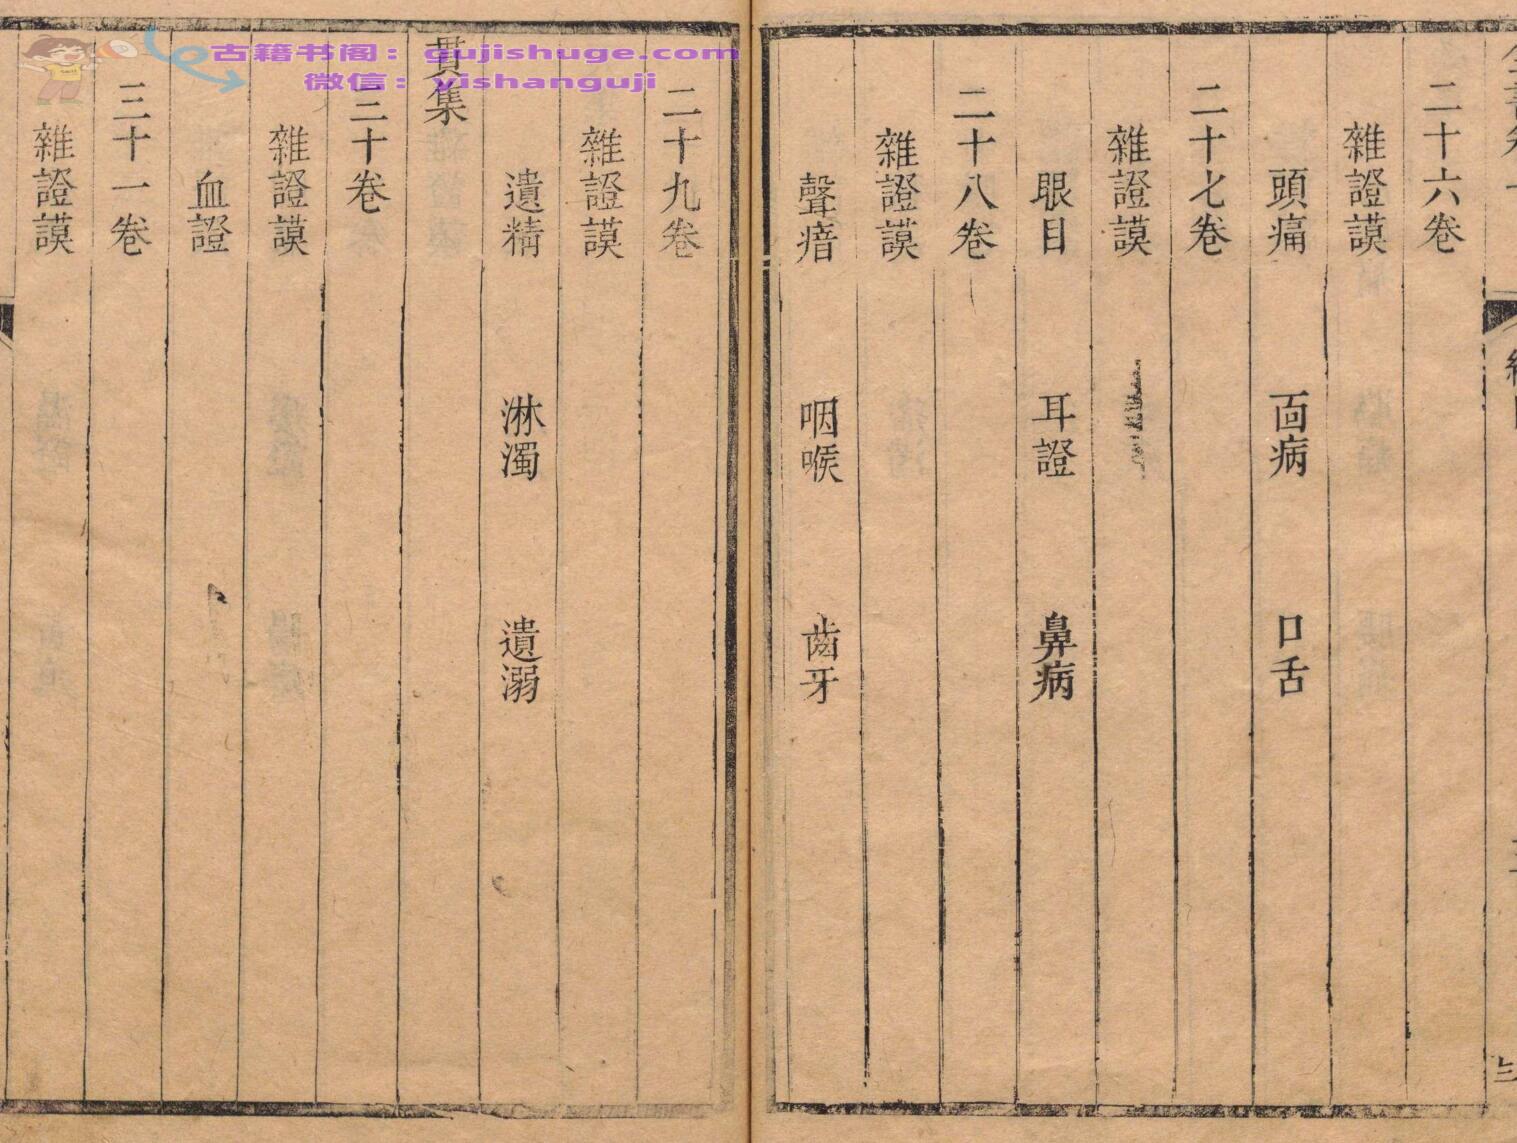 二十六卷
雜證謨
頭痛 面病 口舌
二十七卷
雜證謨
眼目 耳證 鼻病
二十八卷
雜證謨
聲瘖 咽喉 齒牙
二十九卷
雜證謨
遺精 淋濁 遺溺
貫集
三十卷
雜證謨
血證
三十一卷
雜證謨
古籍书阁：gujishuge.com
微信：yishanguji